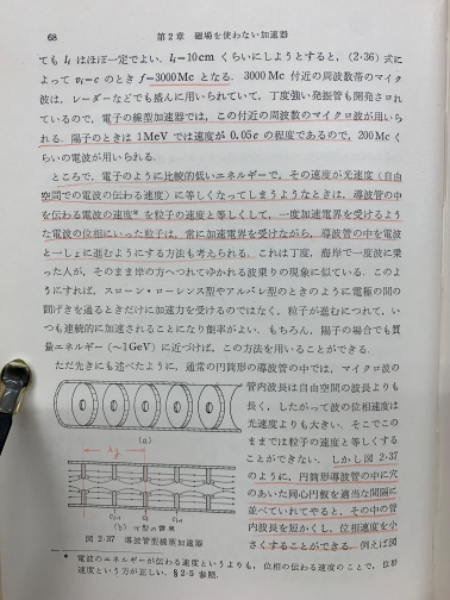 68
第2章 磁場を使わない加速器
ても lᵢ はほぼ一定でよい. lᵢ=10cm くらいにしようとすると, (2·36) 式に
よって vᵢ=c のとき f=3000Mc となる. 3000Mc 付近の周波数帯のマイク
波は, レーダーなどでも盛んに用いられていて, 丁度強い発振管も開発され
ているので, 電子の線型加速器では, この付近の周波数のマイクロ波が用いら
れる. 陽子のときは 1MeV では速度が 0.05c の程度であるので, 200Mc く
らいの電波が用いられる.
ところで, 電子のように比較的低いエネルギーで, その速度が光速度 (自由
空間での電波の伝わる速度) に等しくなってしまうようなときは, 導波管の中
を伝わる電波の速度* を粒子の速度と等しくして, 一度加速電界を受けるよう
な電波の位相にいった粒子は, 常に加速電界を受けながら, 導波管の中を電波
と一しょに進むようにする方法も考えられる. これは丁度, 海岸で一度波に乗
った人が, そのまま岸の方へつれてゆかれる波乗りの現象に似ている. このよ
うにすれば, スローン·ローレンス型やアルバレ型のときのように電極の間の
間げきを通るときだけに加速力を受けるのではなく, 粒子が進むにつれて, い
つも連続的に加速されることになり能率がよい. もちろん, 陽子の場合でも質
量エネルギー (〜1GeV) に近づけば, この方法を用いることができる.
ただ先きにも述べたように, 通常の円筒形の導波管の中では, マイクロ波の
管内波長は自由空間の波長よりも
長く, したがって波の位相速度は
光速度よりも大きい. そこでこの
ままでは粒子の速度と等しくする
ことができない. しかし図 2·37
のように, 円筒形導波管の中に穴
のあいた同心円板を適当な間隔に
並べていれてやると, その中の管
内波長を短かくし, 位相速度を小
さくすることができる. 例えば図
(a)
λg
(b) π型の電界
図 2·37 導波管型線型加速器
* 電波のエネルギーが伝わる速度というよりも, 位相の伝わる速度のことで, 位相
速度という方が正しい. §2·5 参照.